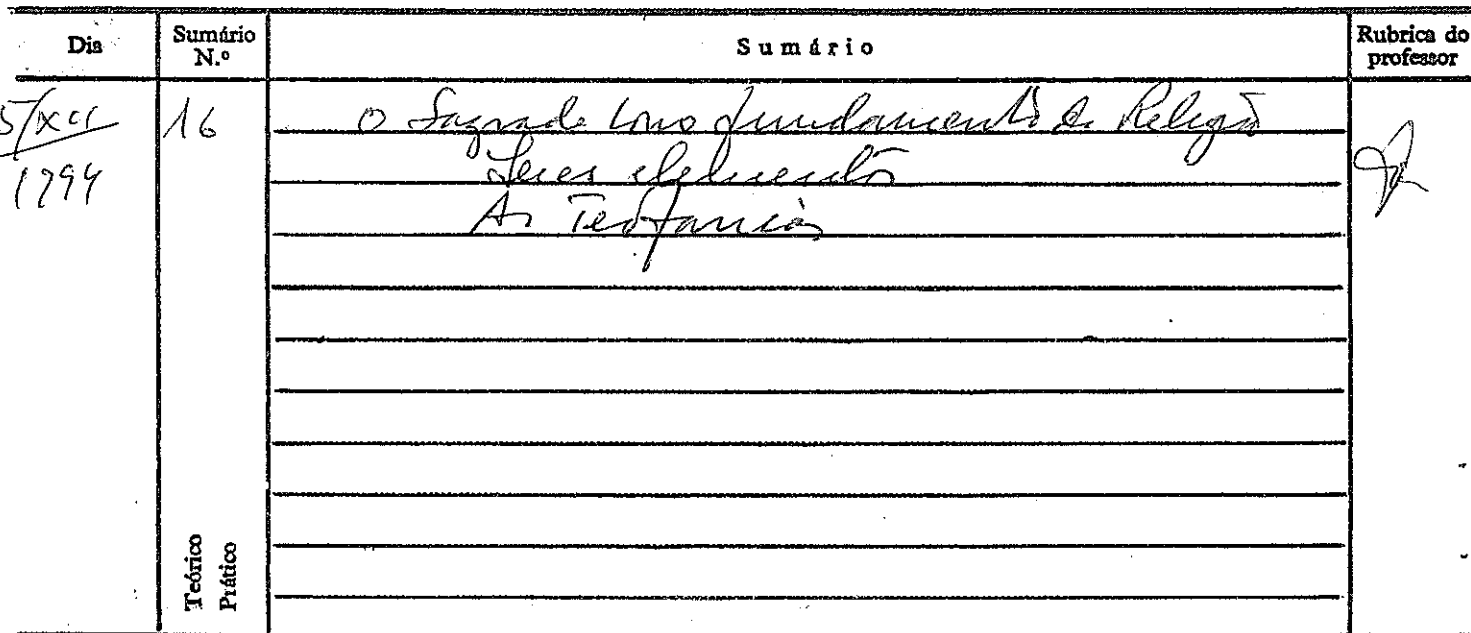 Dia Sumário N.º Sumário Rubrica do professor
5/XII 16 O Sagrado como fundamento da Religião
1994 Seus elementos
As Teofanias
Teórico
Prático